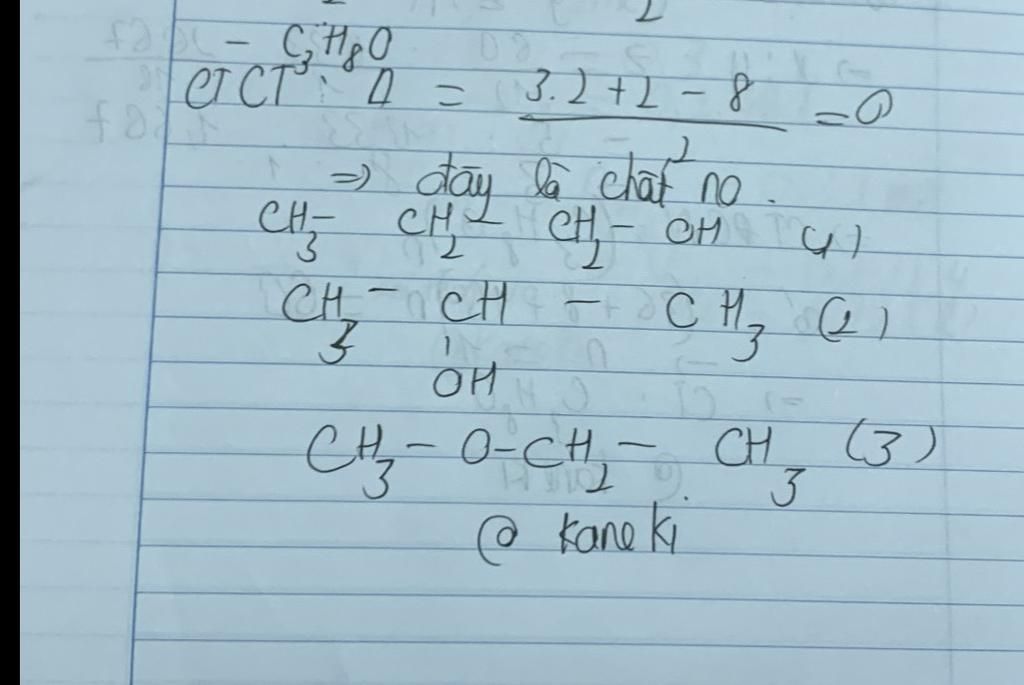 2
- C₃H₈O
CTCT: Δ = (3.2+2-8)/2 = 0
=> đây là chất no.
CH₃- CH₂- CH₂- OH (1)
CH₃ - CH - CH₃ (2)
OH
CH₃ - O-CH₂ - CH₃ (3)
@ kaneki